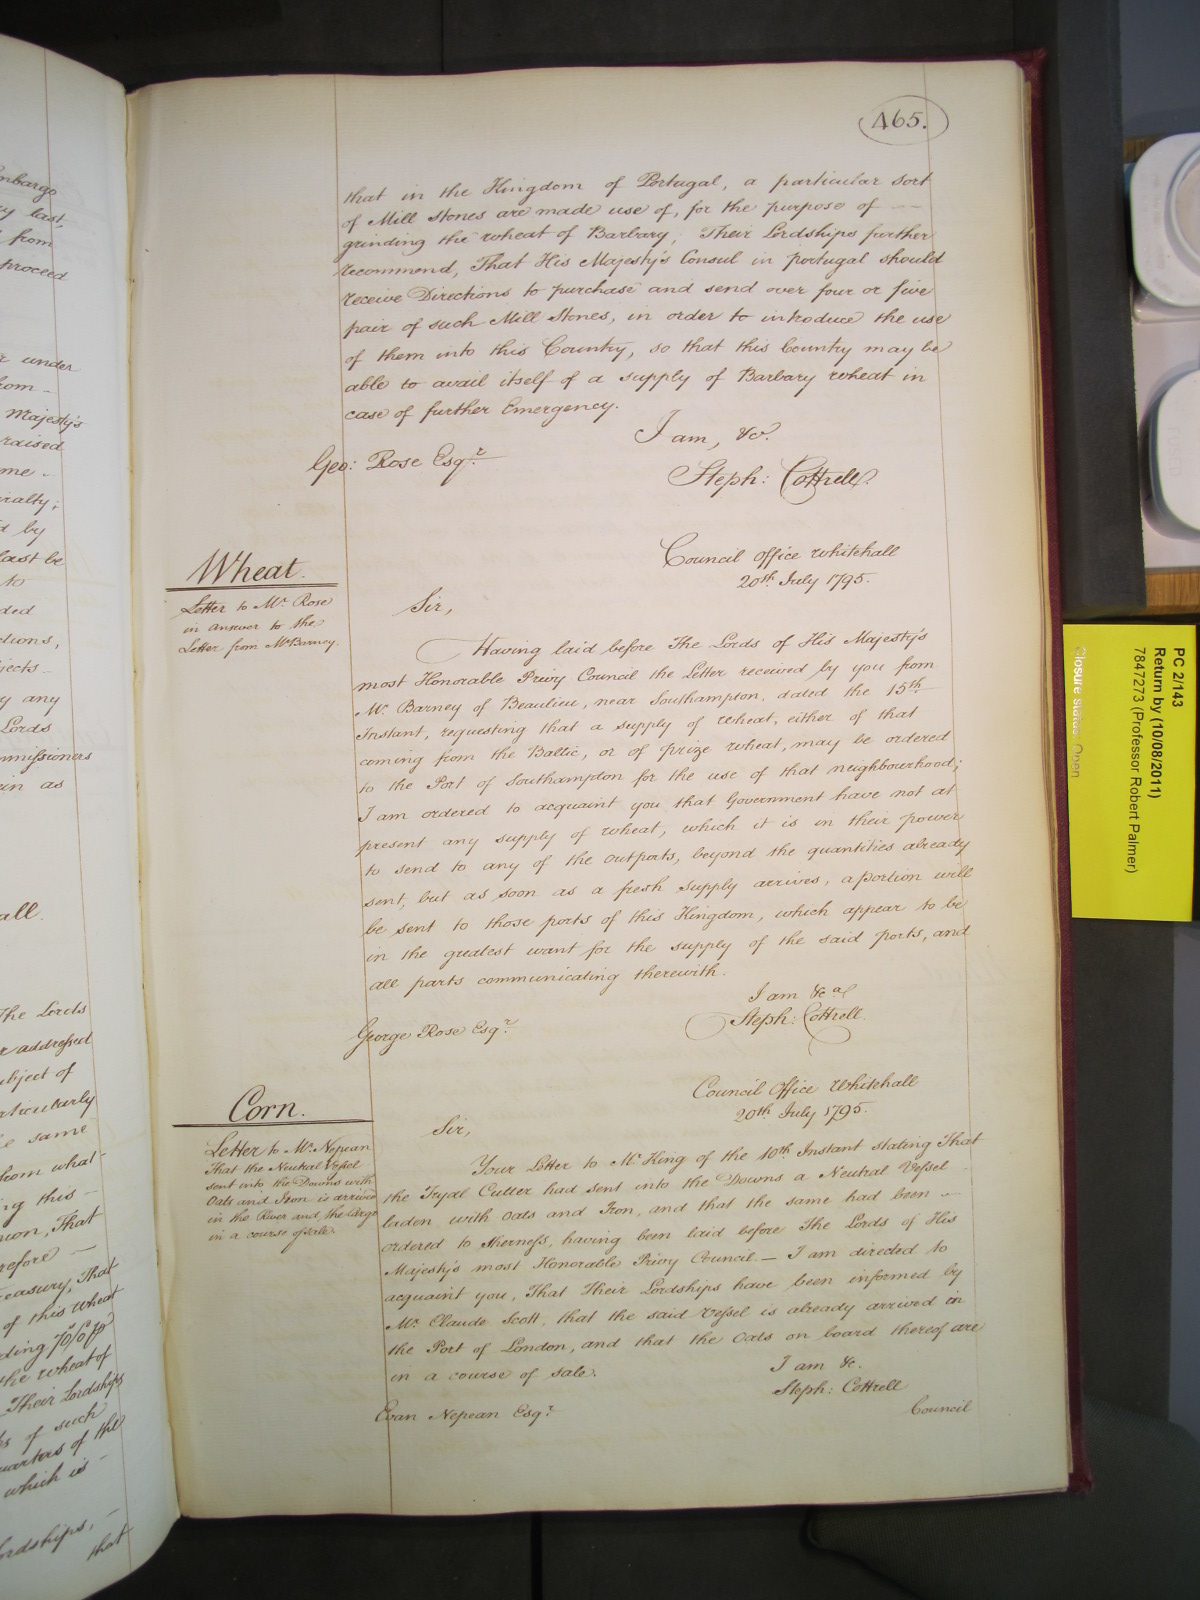 465.
that in the Kingdom of Portugal, a particular sort
of Mill Stones are made use of, for the purpose of
grinding the wheat of Barbary; Their Lordships further
recommend, That His Majesty's Consul in Portugal should
receive Directions to purchase and send over four or five
pair of such Mill Stones, in order to introduce the use
of them into this Country, so that this Country may be
able to avail itself of a supply of Barbary wheat in
case of further Emergency.
I am, &c.
Geo: Rose Esqr.
Steph: Cottrell.
Council Office Whitehall
20th July 1795.
Wheat.
Letter to Mr. Rose
in answer to the
Letter from Mr Barney.
Sir,
Having laid before The Lords of His Majesty's
most Honorable Privy Council the Letter received by you from
Mr. Barney of Beaulieu, near Southampton, dated the 15th
Instant, requesting that a supply of wheat, either of that
coming from the Baltic, or of prize wheat, may be ordered
to the Port of Southampton for the use of that neighbourhood;
I am ordered to acquaint you that Government have not at
present any supply of wheat, which it is in their power
to send to any of the outports, beyond the quantities already
sent, but as soon as a fresh supply arrives, a portion will
be sent to those ports of this Kingdom, which appear to be
in the greatest want for the supply of the said ports, and
all parts communicating therewith.
I am &ca
Steph: Cottrell.
George Rose Esqr.
Council Office Whitehall
20th July 1795.
Corn.
Letter to Mr. Nepean
That the Neutral Vessel
sent into the Downs with
Oats and Iron is arrived
in the River and the Cargo
in a course of sale.
Sir,
Your Letter to Mr. King of the 10th Instant stating That
the Frydl Cutter had sent into the Downs a Neutral Vessel
laden with Oats and Iron, and that the same had been
ordered to Sherness, having been laid before The Lords of His
Majesty's most Honorable Privy Council — I am directed to
acquaint you, That Their Lordships have been informed by
Mr. Claude Scott, that the said Vessel is already arrived in
the Port of London, and that the Oats on board thereof are
in a course of sale.
I am &c.
Steph: Cottrell
Evan Nepean Esqr.
Council
embargo
last,
from
proceed
under
Majesty's
raised
me
by
last be
to
any
Lords
in as
all.
The Lords
addressed
subject of
particularly
same
from what
ing this
That
refore
That
of this wheat
the wheat of
Their Lordships
of such
quarters of the
which is
Lordships,
that
PC 2/143
Return by (10/08/2011)
7847273 (Professor Robert Palmer)
Closure status: Open